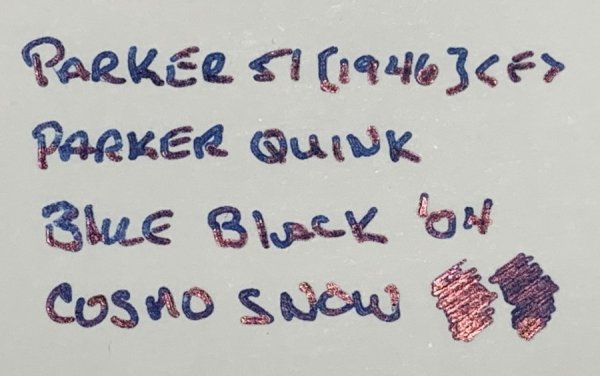 PARKER 51 [1946] <F>
PARKER QUINK
BLUE BLACK '04
COSMO SNOW